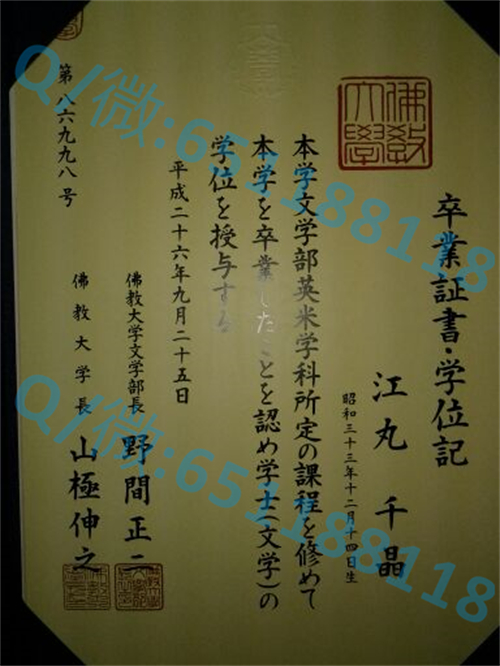 佛教
大學
卒業証書・学位記
江丸 千晶
昭和三十三年十二月十四日生
本学文学部英米学科所定の課程を修めて
本学を卒業したことを認め学士(文学)の
学位を授与する
平成二十六年九月二十五日
佛教大学文学部長 野間正二
佛教大学長 山極伸之
第八六九九八号
Q/微:651188118
Q/微:651188118